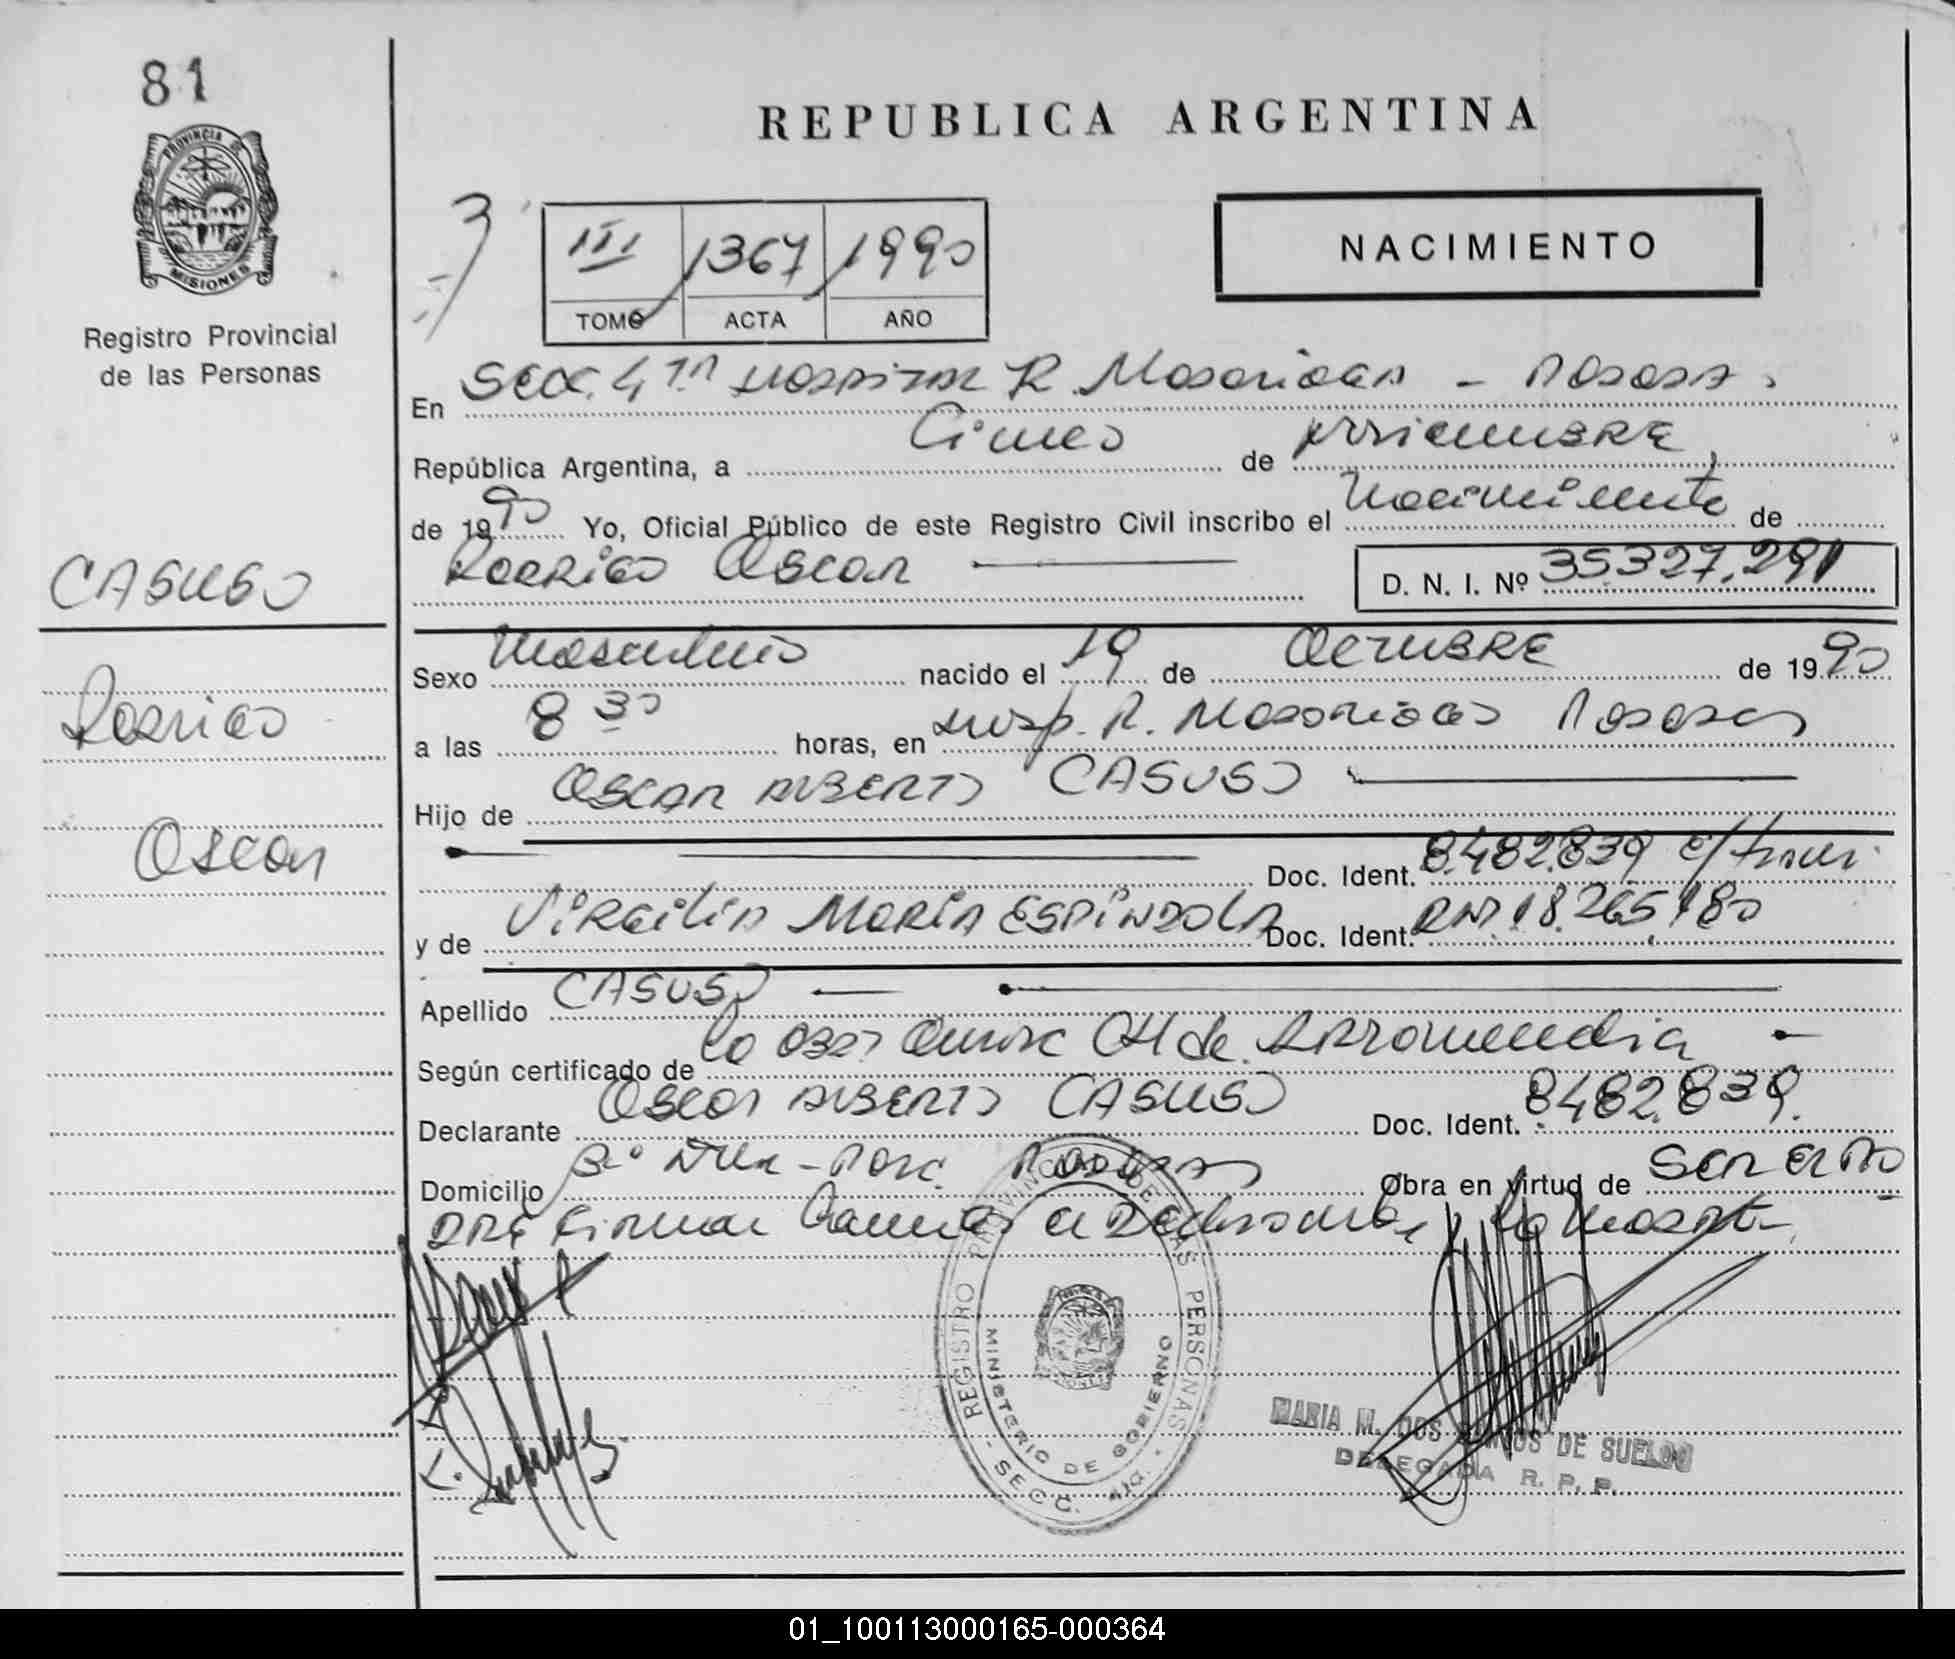 81
PROVINCIA DE
MISIONES
Registro Provincial
de las Personas
CASUSO
Rodrigo
Oscar
REPUBLICA ARGENTINA
NACIMIENTO
III 1367 1990
TOMO ACTA AÑO
En Secc. 4ta Hospital R. Madariaga - Posadas.
República Argentina, a Cinco de Diciembre
de 1990 Yo, Oficial Público de este Registro Civil inscribo el Nacimiento de
Rodrigo Oscar
D. N. I. Nº 35.327.291
Sexo Masculino nacido el 19 de Octubre de 1990
a las 8 30 horas, en Hosp. R. Madariaga Posadas
Hijo de Oscar Alberto CASUSO
Doc. Ident. 8.482.839
y de Virgilia María ESPINDOLA Doc. Ident. DNI 18.265.180
Apellido CASUSO
Según certificado de la Obst. H de Arromendia
Declarante Oscar Alberto CASUSO Doc. Ident. 8482.839.
Domicilio Posadas Obra en virtud de ser el pa
dre firman el Declarante y la madre
REGISTRO PROVINCIAL DE LAS PERSONAS
MINISTERIO DE GOBIERNO
- SECC. 4ta. -
MARIA M. DOS SANTOS DE SUELDO
DELEGADA R. P. P.
01_100113000165-000364